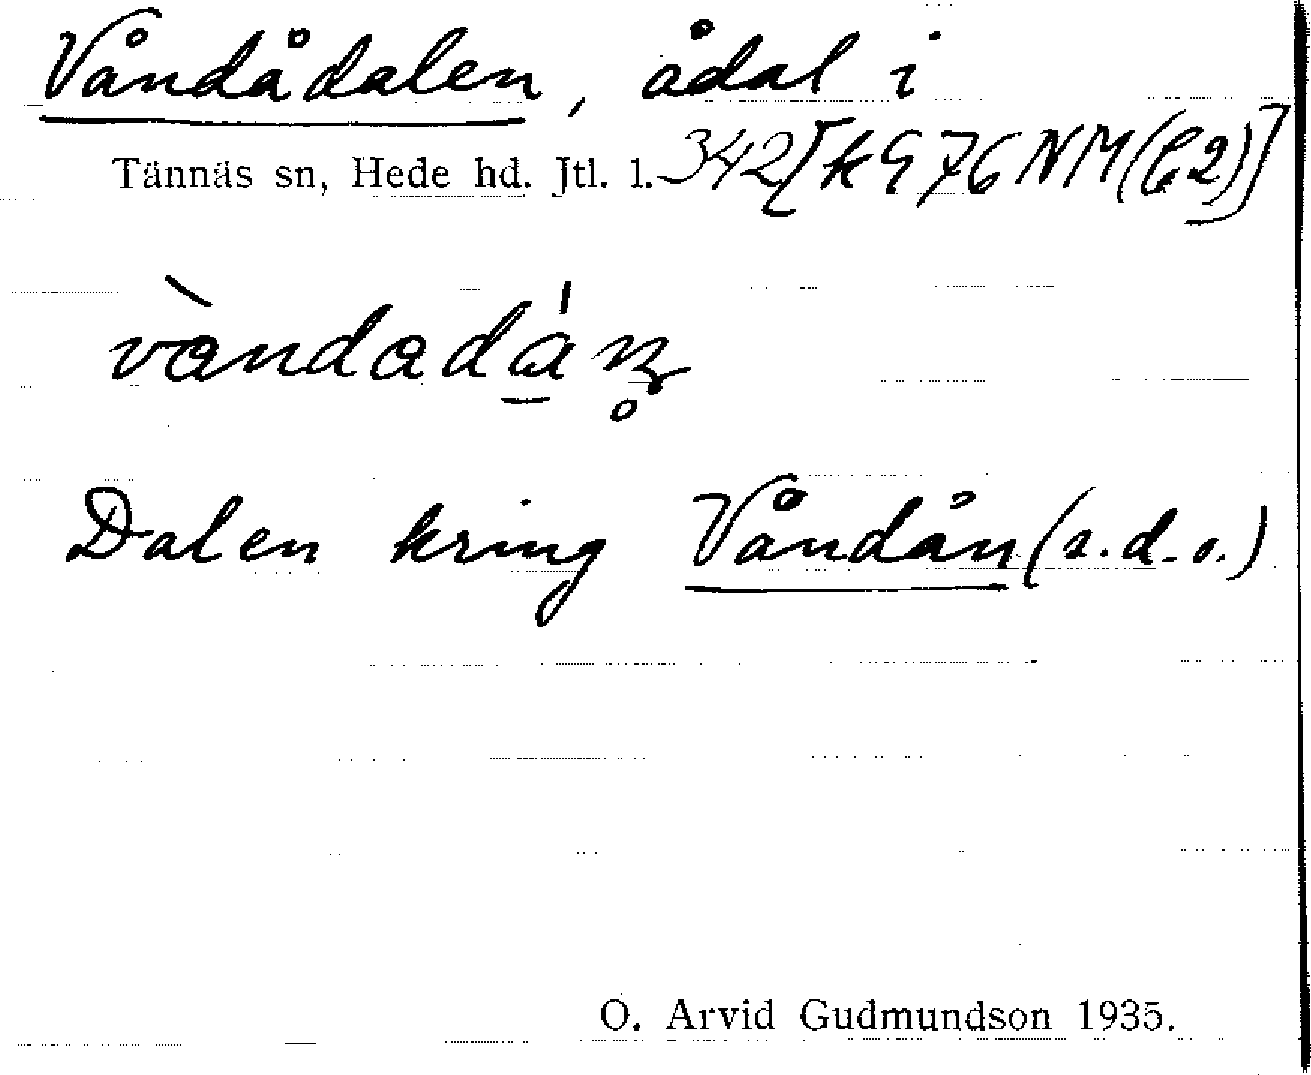 Våndådalen, ådal i
Tännäs sn, Hede hd. Jtl. l. 342[k976NM(C2)]
Dalen kring Våndån (s.d.o.)
O. Arvid Gudmundson 1935.